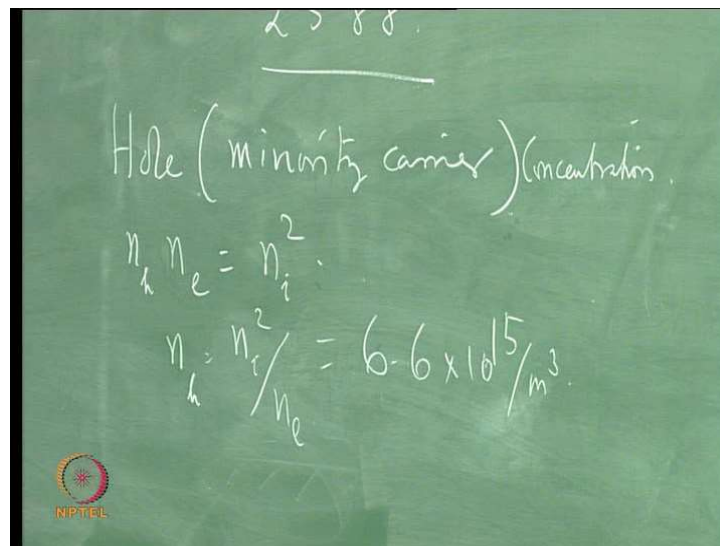 2588.
Hole (minority carrier) Concentration.
n_h n_e = n_i^2.
n_h = n_i^2/n_e = 6.6 x 10^15/m^3.
NPTEL